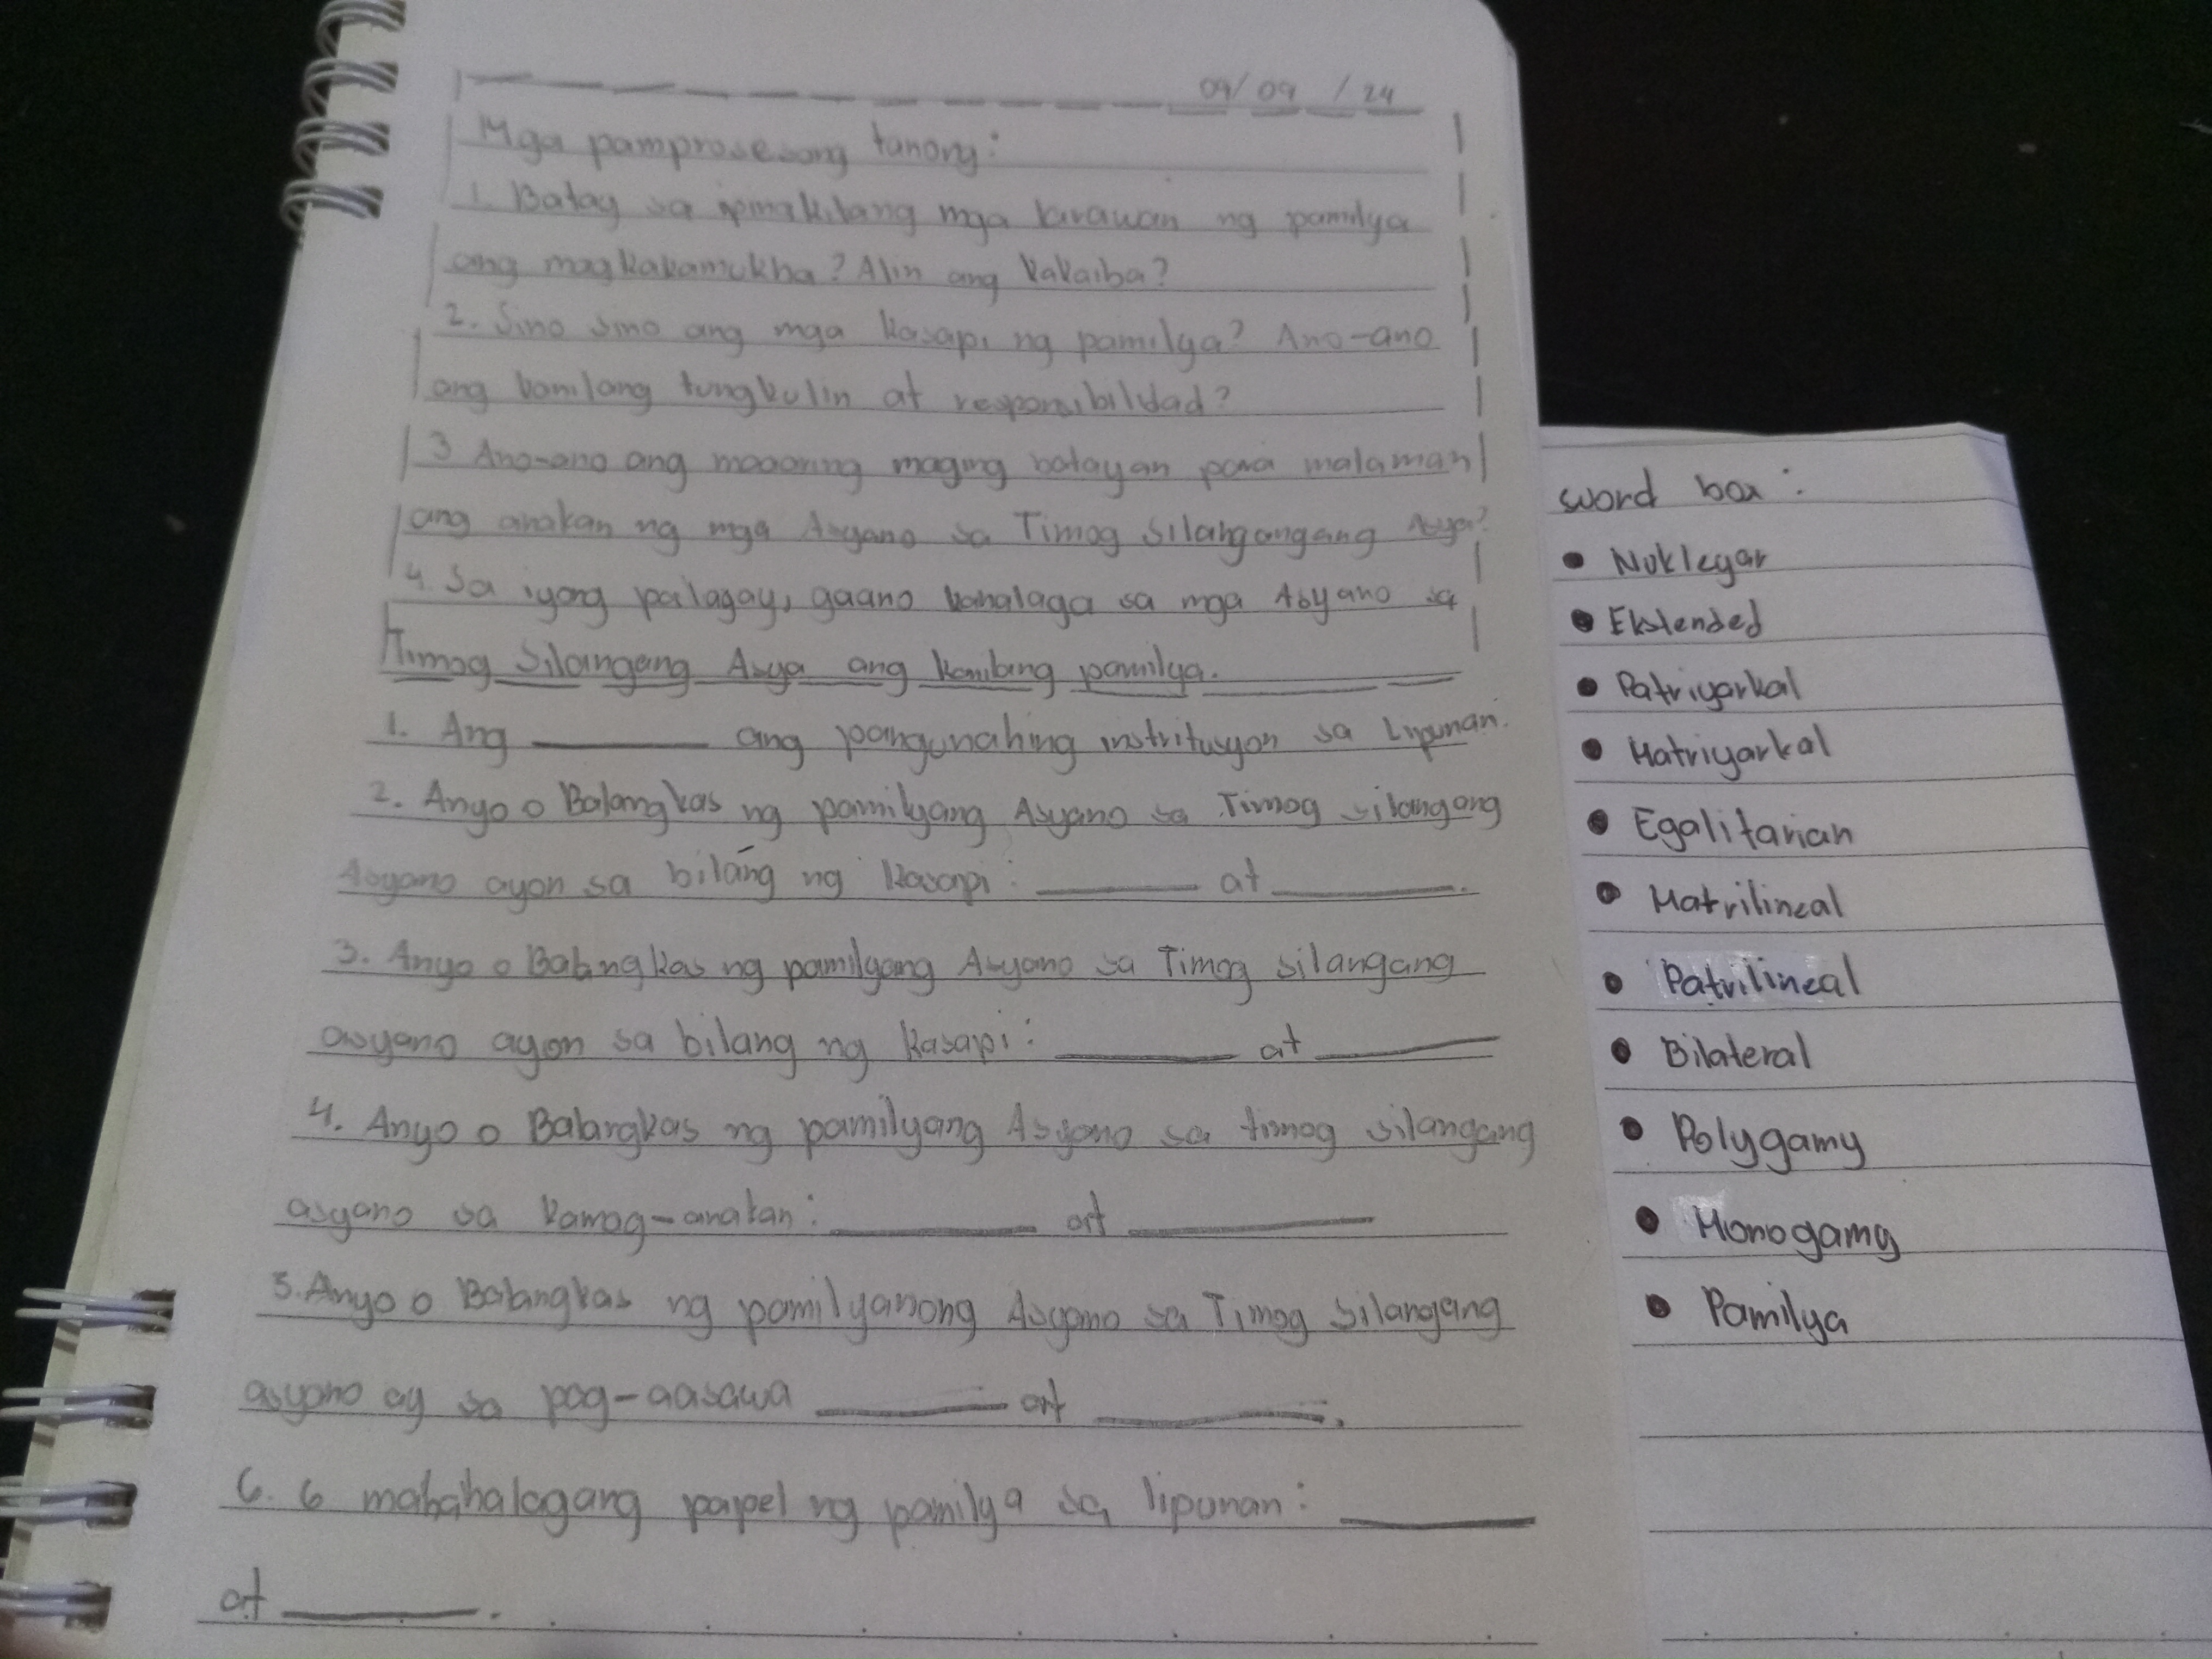 09/09/24
Mga pamprosesong tanong:
1. Batay sa ipinakitang mga larawan ng pamilya
ang magkakamukha? Alin ang kakaiba?
2. Sino sino ang mga kasapi ng pamilya? Ano-ano
ang kanilang tungkulin at responsibilidad?
3 Ano-ano ang maaaring maging batayan para malaman
ang anakan ng mga Asyano sa Timog Silangangang Asya?
4. Sa iyong palagay, gaano kahalaga sa mga Asyano sa
Timog Silangang Asya ang kanilang pamilya.
1. Ang ______ ang pangunahing instritusyon sa Lipunan.
2. Anyo o Balangkas ng pamilyang Asyano sa Timog silangang
Asyano ayon sa bilang ng kasapi: ______ at ______.
3. Anyo o Balangkas ng pamilyang Asyano sa Timog silangang
asyano ayon sa bilang ng kasapi: ______ at ______
4. Anyo o Balangkas ng pamilyang Asyano sa timog silangang
asyano sa kamag-anakan: ______ at ______
5. Anyo o Balangkas ng pamilyanong Asyano sa Timog Silangang
asyano ay sa pag-aasawa ______ at ______.
6. 6 mahahalagang papel ng pamilya sa lipunan: ______
at ______.
word box:
• Nuklegar
• Ekstended
• Patriyarkal
• Matriyarkal
• Egalitarian
• Matrilineal
• Patrilineal
• Bilateral
• Polygamy
• Monogamy
• Pamilya